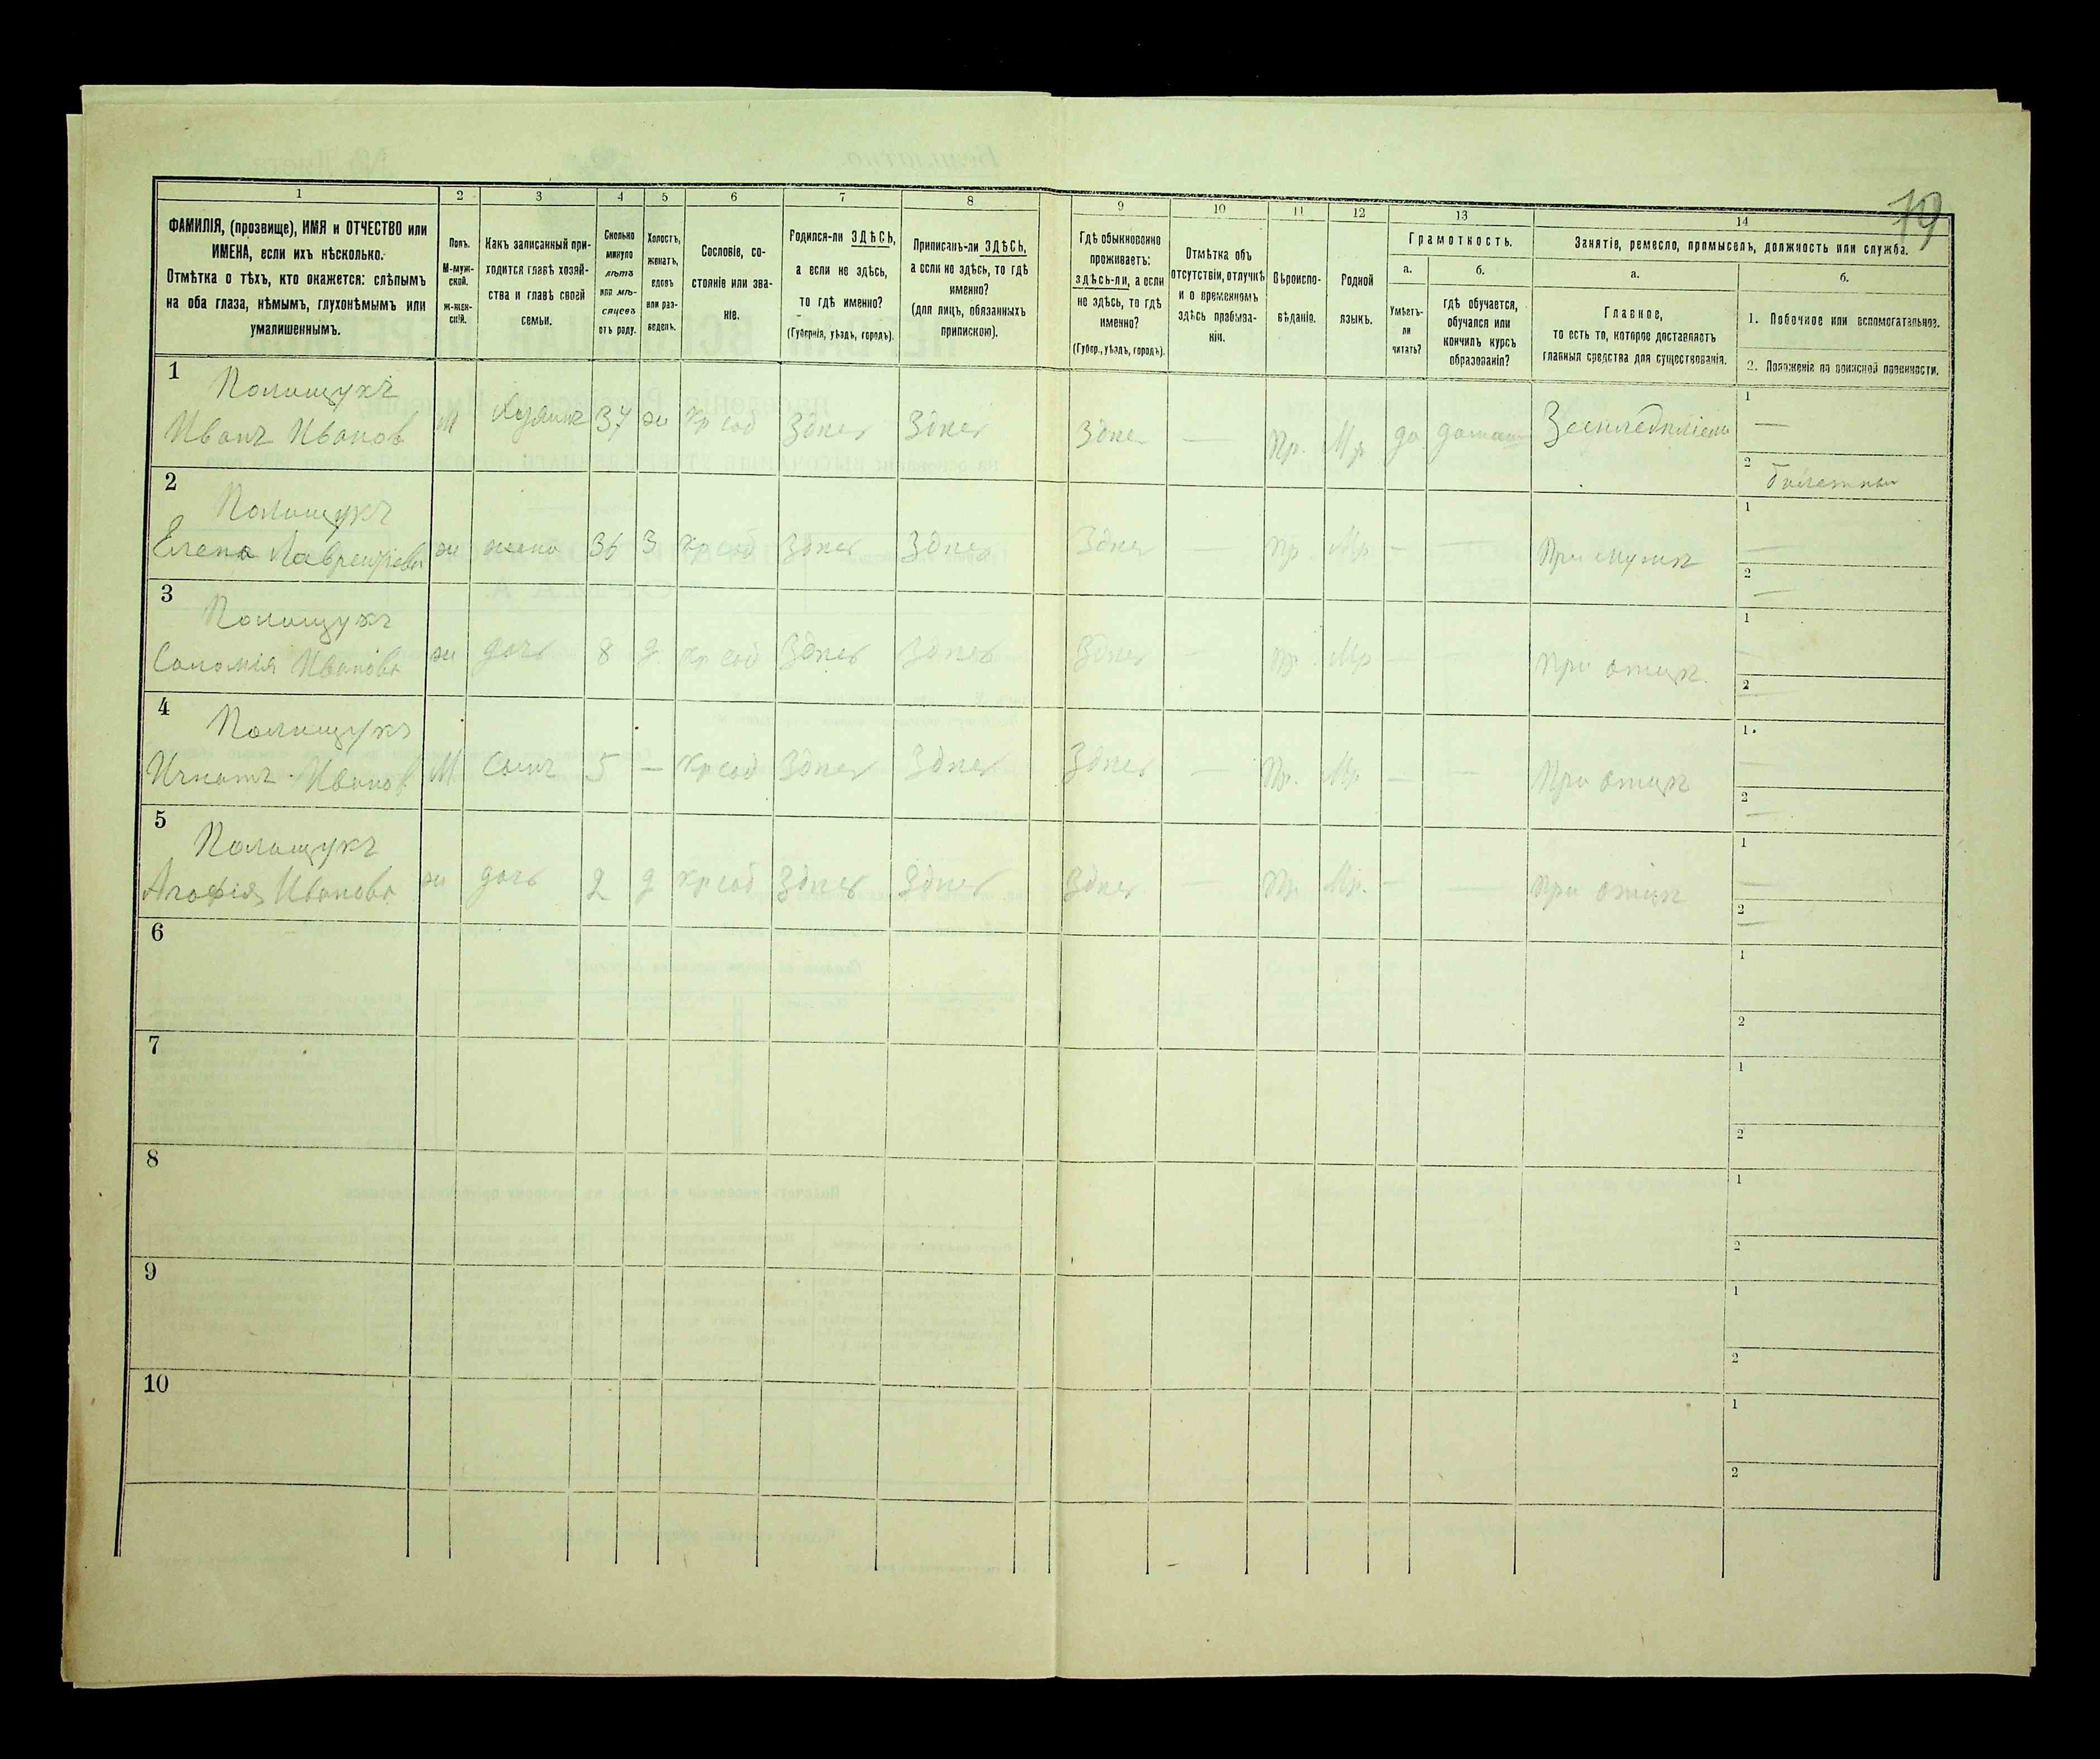 79
1 2 3 4 5 6 7 8 9 10 11 12 13 14
ФАМИЛІЯ, (прозвище), ИМЯ и ОТЧЕСТВО или
ИМЕНА, если ихъ нѣсколько.
Отмѣтка о тѣхъ, кто окажется: слѣпымъ
на оба глаза, нѣмымъ, глухонѣмымъ или
умалишеннымъ.
Полъ.
М-муж-
ской.
ж-жен-
скій.
Какъ записанный при-
ходится главѣ хозяй-
ства и главѣ своей
семьи.
Сколько
минуло
лѣтъ
или мѣ-
сяцевъ
отъ роду.
Холостъ,
женатъ,
вдовъ
или раз-
веденъ.
Сословіе, со-
стояніе или зва-
ніе.
Родился-ли ЗДѢСЬ,
а если не здѣсь,
то гдѣ именно?
(Губернія, уѣздъ, городъ).
Приписанъ-ли ЗДѢСЬ,
а если не здѣсь, то гдѣ
именно?
(для лицъ, обязанныхъ
припискою).
Гдѣ обыкновенно
проживаетъ:
здѣсь-ли, а если
не здѣсь, то гдѣ
именно?
(Губер., уѣздъ, городъ).
Отмѣтка объ
отсутствіи, отлучкѣ
и о временномъ
здѣсь пребыва-
ніи.
Вѣроиспо-
вѣданіе.
Родной
языкъ.
Грамотность.
а.
Умѣетъ-
ли
читать?
б.
гдѣ обучается,
обучался или
кончилъ курсъ
образованія?
Занятіе, ремесло, промыселъ, должность или служба.
а.
Главное,
то есть то, которое доставляетъ
главныя средства для существованія.
б.
1. Побочное или вспомогательное.
2. Положеніе по воинской повинности.
1 Полищукъ
Иванъ Иванов М 37 ж кр соб Здѣсь Здѣсь Здѣсь — Пр. Мр да 1 —
2
2 Полищукъ
Елена Лаврентіева ж жена 36 З кр соб Здѣсь Здѣсь Здѣсь — Пр Мр — — При мужѣ 1 —
2 —
3 Полищукъ
Соломія Иванова ж дочь 8 д кр соб Здѣсь Здѣсь Здѣсь — Пр. Мр — — При отцѣ 1 —
2 —
4 Полищукъ
Игнатъ Иванов М Сынъ 5 — кр соб Здѣсь Здѣсь Здѣсь — Пр. Мр — — При отцѣ 1 —
2 —
5 Полищукъ
Агафія Иванова ж дочь 2 д кр соб Здѣсь Здѣсь Здѣсь — Пр. Мр. — — При отцѣ 1 —
2 —
6 1
2
7 1
2
8 1
2
9 1
2
10 1
2